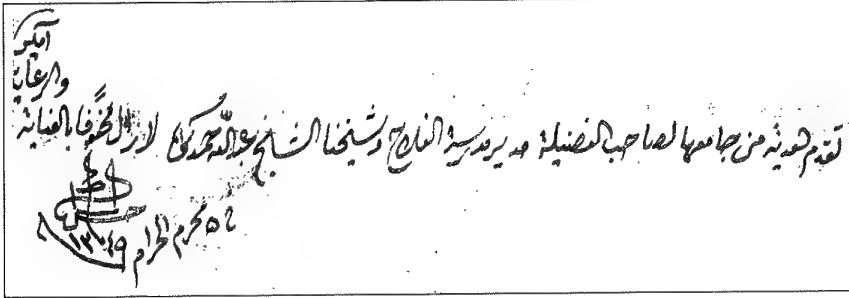 تقدم هدية من جامعها لصاحب الفضيلة مدير مدرسة الفلاح وشيخنا الشيخ عبدالله حمدوه لازال محفوفا بالعناية
والرعاية
آمين
٢٥ محرم الحرام ١٣٤٩